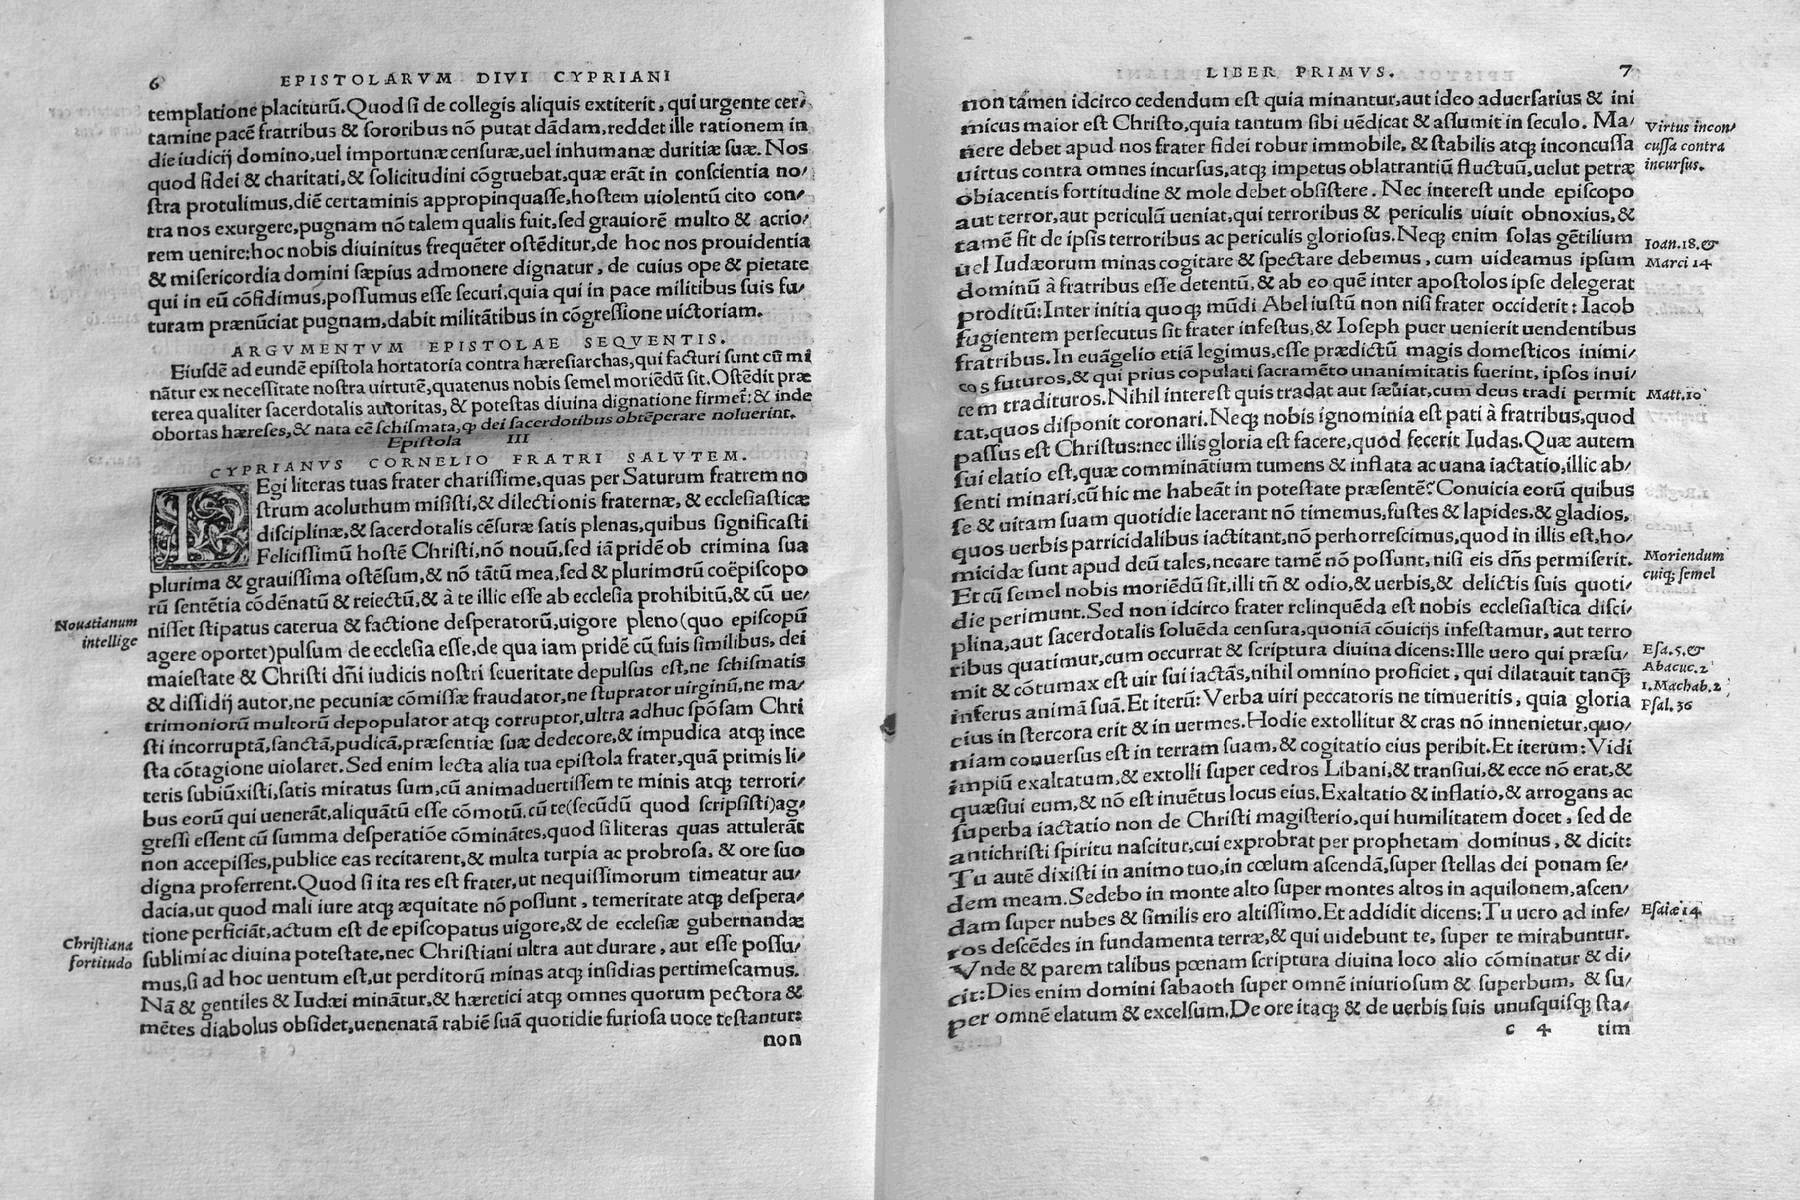 6 EPISTOLARVM DIVI CYPRIANI
templatione placiturũ. Quod ſi de collegis aliquis extiterit, qui urgente cer/
tamine pacẽ fratribus & ſororibus nõ putat dãdam, reddet ille rationem in
die iudicij domino, uel importunæ cenſuræ, uel inhumanæ duritiæ ſuæ. Nos
quod fidei & charitati, & ſolicitudini cõgruebat, quæ erãt in conſcientia no/
ſtra protulimus, diẽ certaminis appropinquaſſe, hoſtem uiolentũ cito con/
tra nos exurgere, pugnam nõ talem qualis fuit, ſed grauiorẽ multo & acrio/
rem uenire: hoc nobis diuinitus frequẽter oſtẽditur, de hoc nos prouidentia
& miſericordia domini ſæpius admonere dignatur, de cuius ope & pietate
qui in eũ cõfidimus, poſſumus eſſe ſecuri, quia qui in pace militibus ſuis fu/
turam prænũciat pugnam, dabit militãtibus in cõgreſſione uictoriam.
ARGVMENTVM EPISTOLAE SEQVENTIS.
Eiuſdẽ ad eundẽ epiſtola hortatoria contra hæreſiarchas, qui facturi ſunt cũ mi
nãtur ex neceſſitate noſtra uirtutẽ, quatenus nobis ſemel moriẽdũ ſit. Oſtẽdit præ
terea qualiter ſacerdotalis autoritas, & poteſtas diuina dignatione firmet̃: & inde
obortas hæreſes, & nata cẽ ſchiſmata, ꝙ dei ſacerdotibus obtẽperare noluerint.
Epiſtola III
CYPRIANVS CORNELIO FRATRI SALVTEM.
LEgi literas tuas frater chariſſime, quas per Saturum fratrem no
ſtrum acoluthum miſiſti, & dilectionis fraternæ, & eccleſiaſticæ
diſciplinæ, & ſacerdotalis cẽſuræ ſatis plenas, quibus ſignificaſti
Feliciſſimũ hoſtẽ Chriſti, nõ nouũ, ſed iã pridẽ ob crimina ſua
plurima & grauiſſima oſtẽſum, & nõ tãtũ mea, ſed & plurimorũ coẽpiſcopo
rũ ſentẽtia cõdẽnatũ & reiectũ, & à te illic eſſe ab eccleſia prohibitũ, & cũ ue/
Nouatianum
intellige
niſſet ſtipatus caterua & factione deſperatorũ, uigore pleno (quo epiſcopũ
agere oportet) pulſum de eccleſia eſſe, de qua iam pridẽ cũ ſuis ſimilibus, dei
maieſtate & Chriſti dñi iudicis noſtri ſeueritate depulſus eſt, ne ſchiſmatis
& diſſidij autor, ne pecuniæ cõmiſſæ fraudator, ne ſtuprator uirginũ, ne ma/
trimoniorũ multorũ depopulator atqꝫ corruptor, ultra adhuc ſpõſam Chri
ſti incorruptã, ſanctã, pudicã, præſentiæ ſuæ dedecore, & impudica atqꝫ ince
ſta cõtagione uiolaret. Sed enim lecta alia tua epiſtola frater, quã primis li/
teris ſubiũxiſti, ſatis miratus ſum, cũ animaduertiſſem te minis atqꝫ terrori/
bus eorũ qui uenerãt, aliquãtũ eſſe cõmotũ. cũ te (ſecũdũ quod ſcripſiſti) ag/
greſſi eſſent cũ ſumma deſperatiõe cõminãtes, quod ſi literas quas attulerãt
non accepiſſes, publice eas recitarent, & multa turpia ac probroſa, & ore ſuo
digna proferrent. Quod ſi ita res eſt frater, ut nequiſſimorum timeatur au/
dacia, ut quod mali iure atqꝫ æquitate nõ poſſunt, temeritate atqꝫ deſpera/
tione perficiãt, actum eſt de epiſcopatus uigore, & de eccleſiæ gubernandæ
Chriſtiana
fortitudo
ſublimi ac diuina poteſtate, nec Chriſtiani ultra aut durare, aut eſſe poſſu/
mus, ſi ad hoc uentum eſt, ut perditorũ minas atqꝫ inſidias pertimeſcamus.
Nã & gentiles & Iudæi minãtur, & hæretici atqꝫ omnes quorum pectora &
mẽtes diabolus obſidet, uenenatã rabiẽ ſuã quotidie furioſa uoce teſtantur:
non
LIBER PRIMVS. 7
non tamen idcirco cedendum eſt quia minantur, aut ideo aduerſarius & ini
micus maior eſt Chriſto, quia tantum ſibi uẽdicat & aſſumit in ſeculo. Ma/
nere debet apud nos frater fidei robur immobile, & ſtabilis atqꝫ inconcuſſa
uirtus contra omnes incurſus, atqꝫ impetus oblatrantiũ fluctuũ, uelut petræ
Virtus incon/
cuſſa contra
incurſus.
obiacentis fortitudine & mole debet obſiſtere. Nec intereſt unde epiſcopo
aut terror, aut periculũ ueniat, qui terroribus & periculis uiuit obnoxius, &
tamẽ fit de ipſis terroribus ac periculis glorioſus. Neqꝫ enim ſolas gẽtilium
uel Iudæorum minas cogitare & ſpectare debemus, cum uideamus ipſum
Ioan. 18. &
Marci 14
dominũ à fratribus eſſe detentũ, & ab eo quẽ inter apoſtolos ipſe delegerat
proditũ: Inter initia quoqꝫ mũdi Abel iuſtũ non niſi frater occiderit: Iacob
fugientem perſecutus ſit frater infeſtus, & Ioſeph puer uenierit uendentibus
fratribus. In euãgelio etiã legimus, eſſe prædictũ magis domeſticos inimi/
cos futuros, & qui prius copulati ſacramẽto unanimitatis fuerint, ipſos inui/
cem tradituros. Nihil intereſt quis tradat aut ſæuiat, cum deus tradi permit
Matt. 10
tat, quos diſponit coronari. Neqꝫ nobis ignominia eſt pati à fratribus, quod
paſſus eſt Chriſtus: nec illis gloria eſt facere, quod fecerit Iudas. Quæ autem
ſui elatio eſt, quæ comminãtium tumens & inflata ac uana iactatio, illic ab/
ſenti minari, cũ hic me habeãt in poteſtate præſentẽ? Conuicia eorũ quibus
ſe & uitam ſuam quotidie lacerant nõ timemus, fuſtes & lapides, & gladios,
quos uerbis parricidalibus iactitant, nõ perhorreſcimus, quod in illis eſt, ho/
micidæ ſunt apud deũ tales, necare tamẽ nõ poſſunt, niſi eis dñs permiſerit.
Moriendum
cuiqꝫ ſemel
Et cũ ſemel nobis moriẽdũ ſit, illi tñ & odio, & uerbis, & delictis ſuis quoti/
die perimunt. Sed non idcirco frater relinquẽda eſt nobis eccleſiaſtica diſci/
plina, aut ſacerdotalis ſoluẽda cenſura, quoniã cõuicijs infeſtamur, aut terro
ribus quatimur, cum occurrat & ſcriptura diuina dicens: Ille uero qui præſu/
mit & cõtumax eſt uir ſui iactãs, nihil omnino proficiet, qui dilatauit tanꝗ̃
inferus animã ſuã. Et iterũ: Verba uiri peccatoris ne timueritis, quia gloria
Eſa. 5. &
Abacuc. 2
1. Machab. 2
Pſal. 36
eius in ſtercora erit & in uermes. Hodie extollitur & cras nõ innenietur, quo/
niam conuerſus eſt in terram ſuam, & cogitatio eius peribit. Et iterum: Vidi
impiũ exaltatum, & extolli ſuper cedros Libani, & tranſiui, & ecce nõ erat, &
quæſiui eum, & nõ eſt inuẽtus locus eius. Exaltatio & inflatio, & arrogans ac
ſuperba iactatio non de Chriſti magiſterio, qui humilitatem docet, ſed de
antichriſti ſpiritu naſcitur, cui exprobrat per prophetam dominus, & dicit:
Tu autẽ dixiſti in animo tuo, in cœlum aſcendã, ſuper ſtellas dei ponam ſe/
dem meam. Sedebo in monte alto ſuper montes altos in aquilonem, aſcen/
dam ſuper nubes & ſimilis ero altiſſimo. Et addidit dicens: Tu uero ad infe/
Eſaiæ 14
ros deſcẽdes in fundamenta terræ, & qui uidebunt te, ſuper te mirabuntur.
Vnde & parem talibus pœnam ſcriptura diuina loco alio cõminatur & di/
cit: Dies enim domini ſabaoth ſuper omnẽ iniurioſum & ſuperbum, & ſu/
per omnẽ elatum & excelſum. De ore itaqꝫ & de uerbis ſuis unuſquiſqꝫ ſta/
c 4 tim